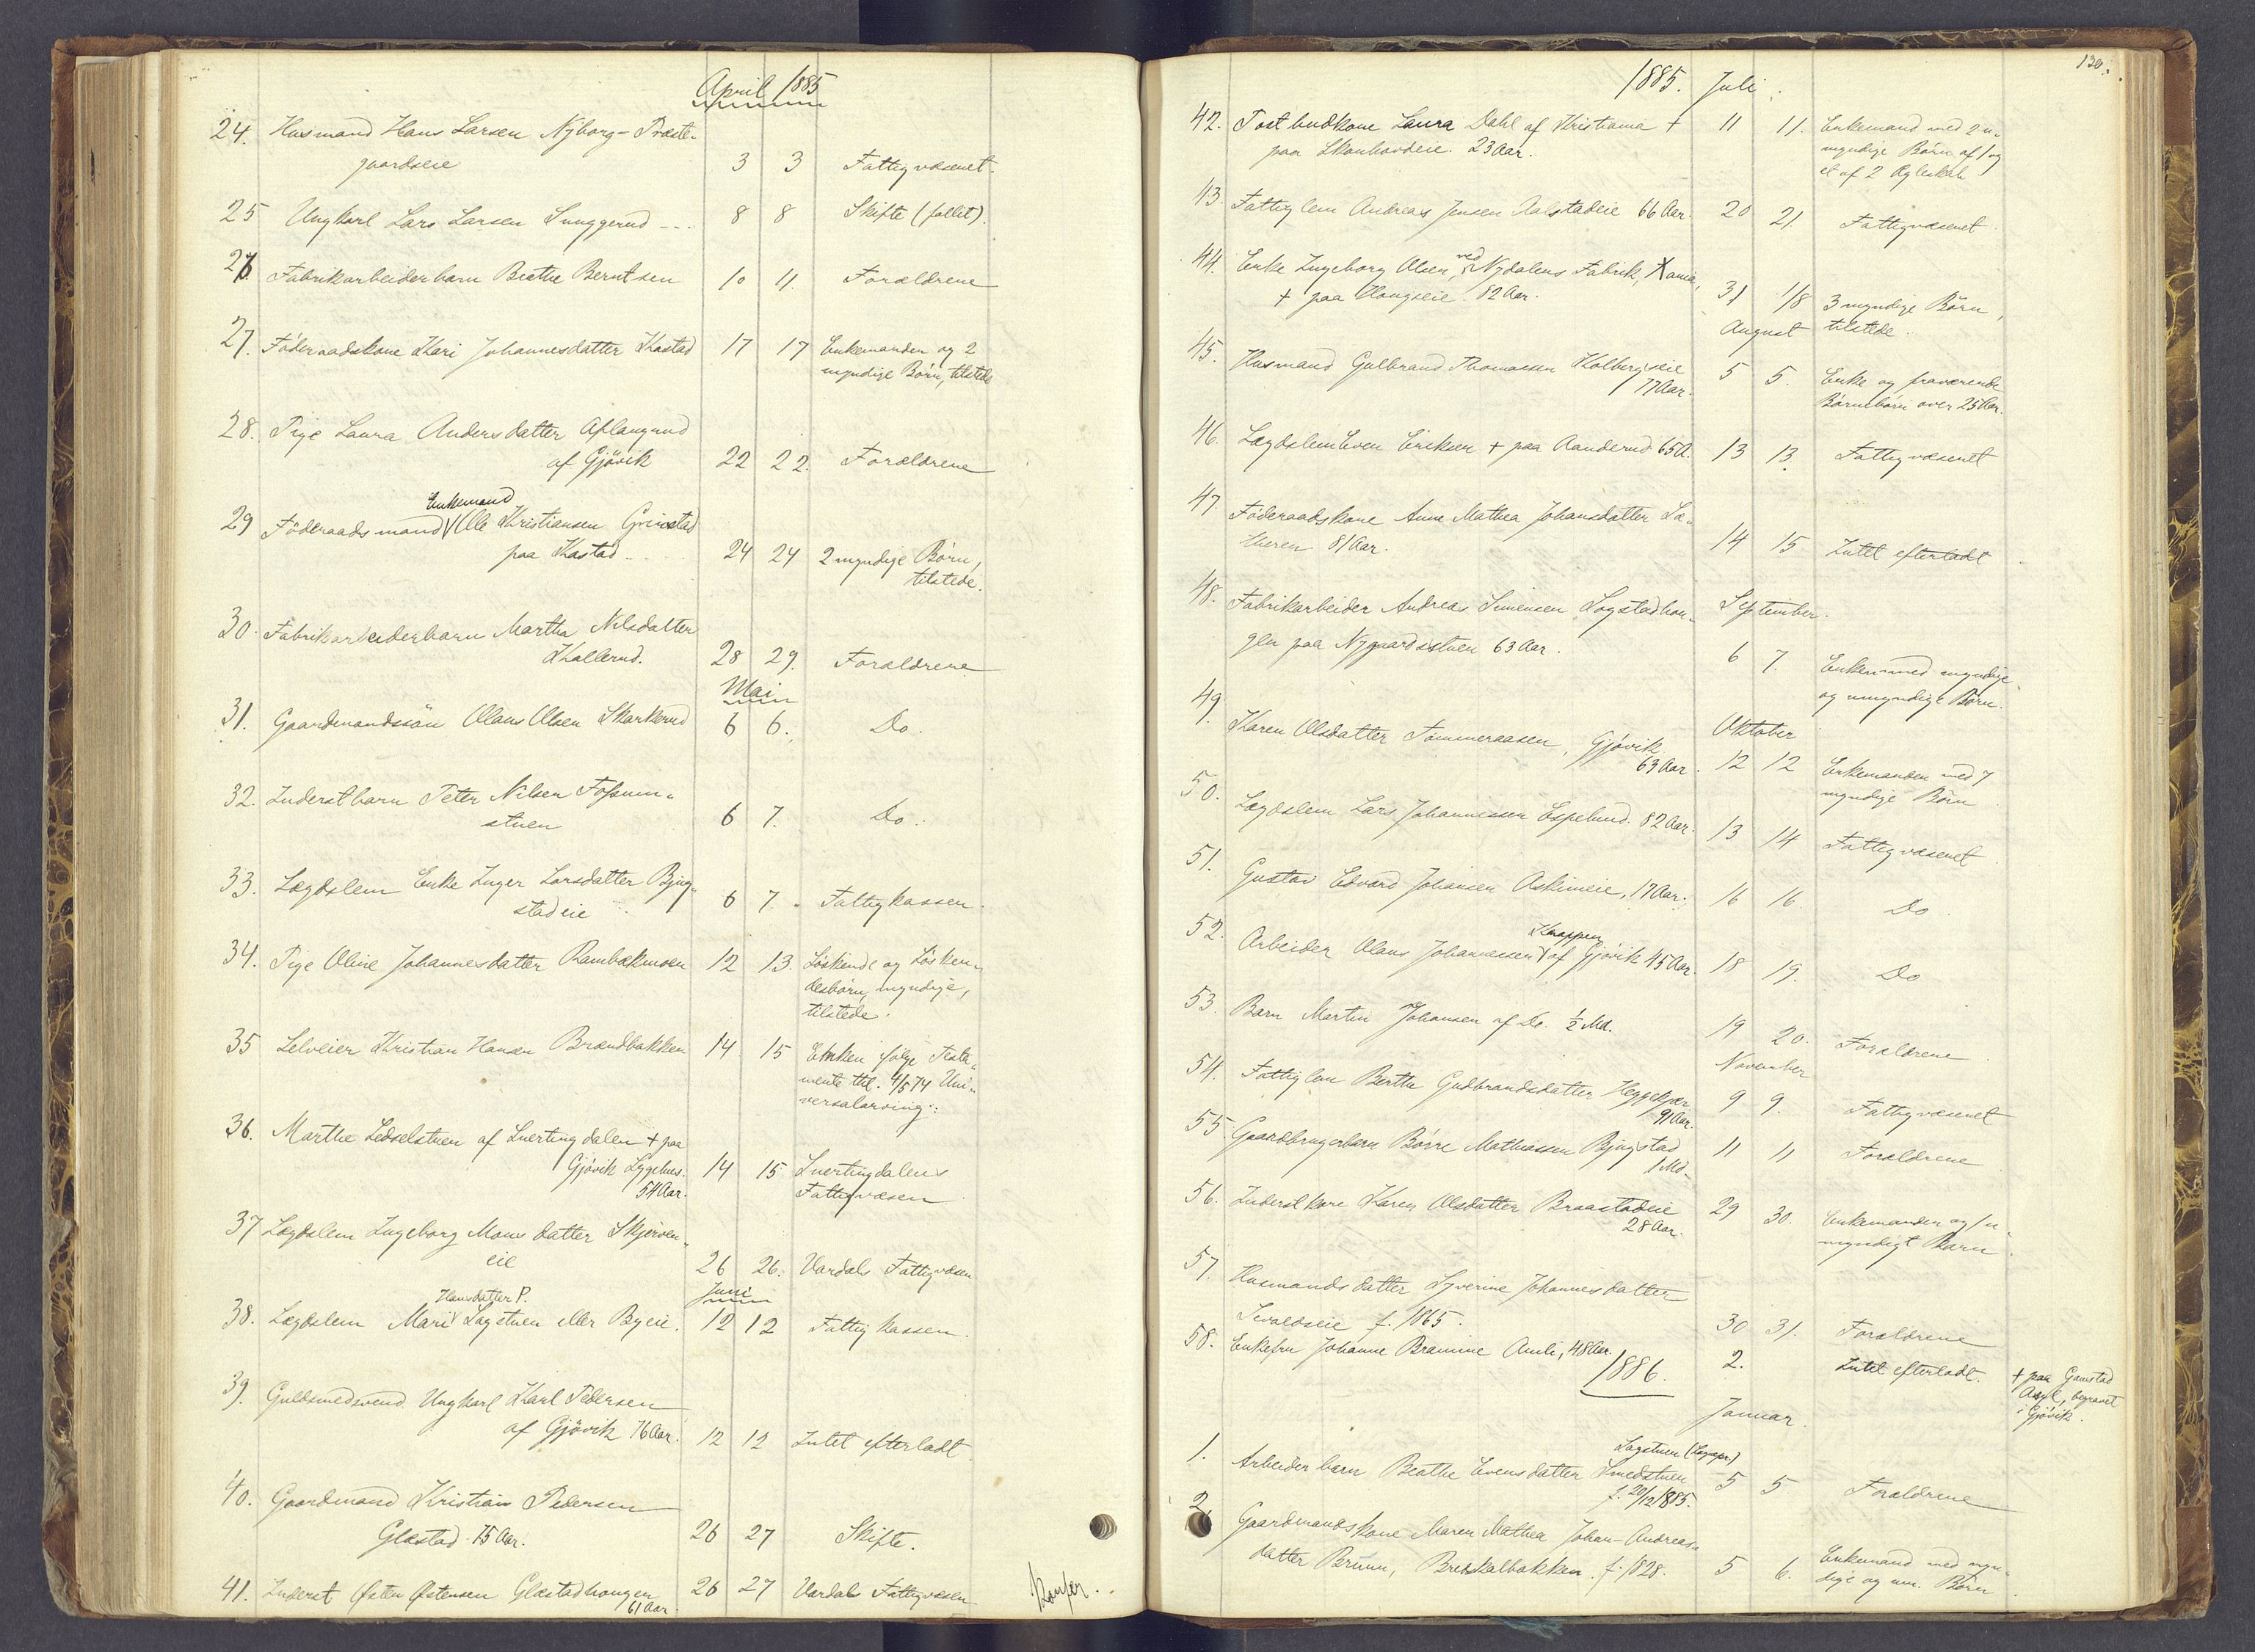 April 1885
24. Husmand Hans Larsen Nyborg-Præste-
gaardseie 3 3 Fattigvæsenet.
25 Ungkarl Lars Larsen Sunggerud --- 8 8 Skifte (faldet).
26 Fabrikarbeiderbarn Beathe Berntsen 10 11. Forældrene
27. Føderaadskone Kari Johannesdatter Kastad 17 17 Enkemanden og 2
myndige Børn, tilstede
28. Pige Laura Andersdatter Aflangrud
af Gjøvik 22 22. Forældrene
Enkemand
29 Føderaadsmand V Ole Kristiansen Grinstad
paa Kastad -- 24 24 2 myndige Børn,
tilstede.
30. Fabrikarbeiderbarn Martha Nilsdatter
Kallerud. 28 29. Forældrene
Mai
31. Gaardmandssøn Olaus Olsen Skarkerud 6 6. Do.
32. Inderstbarn Peter Nilsen Fossum-
stuen 6 7. Do.
33. Lægdslem Enke Inger Larsdatter Bjug-
stadeie 6 7. Fattigkassen.
34. Pige Oline Johannesdatter Rambækmoen 12 13. Söskende og Sösken-
desbørn, myndige,
tilstede.
35 Selveier Kristian Hansen Brændbakken 14 15 Enken ifølge Testa-
mente ttl. 4/5 74 Uni-
versalarving.
36. Marthe Ledselstuen af Snertingdalen + paa
Gjøvik Sygehus. 14 15 Snertingdalens
54 Aar. Fattigvæsen
37 Lægdslem Ingeborg Monsdatter Skjerven-
eie 26 26. Vardals Fattigvæsen
Hansdatter P. Juni
38. Lægdslem Mari V Sagstuen eller Byeie. 12 12 Fattigkassen.
39. Guldsmedsvend Ungkarl Karl Pedersen
af Gjøvik 76 Aar. 12 12 Intet efterladt.
40. Gaardmand Kristian Pedersen
Glæstad 75 Aar. 26 27 Skifte.
41. Inderst Østen Østensen Glæstadhaugen 26 27 Vardals Fattigvæsen
61 Aar.
130.
1885. Juli.
42. Postbudkone Laura Dahl af Kristiania + 11 11. Enkemand med 2 u-
paa Skonhovdeie. 23 Aar. myndige Børn af 1 og
et af 2 Ægteskab
43. Fattiglem Andreas Jensen Aalstadeie 66 Aar. 20 21. Fattigvæsenet
ved
44. Enke Ingeborg Olsen, Nydalens Fabrik, Xania,
+ paa Haugseie. 82 Aar. 31 1/8 3 myndige Børn,
August tilstede.
45. Husmand Gulbrand Thomassen Kolbergseie 5 5. Enke og fraværende
77 Aar. Børnebørn over 25 Aar.
46. Lægdslem Even Eriksen + paa Aanderud 65 A. 13 13. Fattigvæsenet
47 Føderaadskone Anne Mathea Johansdatter Sæ-
theren 81 Aar. 14 15 Intet efterladt.
48. Fabrikarbeider Andreas Simensen Sogstadhau- September.
gen paa Nygaardsstuen 63 Aar. 6 7. Enken med myndige
og umyndige Børn.
49. Oktober
Karen Olsdatter Tømmeraasen, Gjøvik
63 Aar. 12 12 Enkemanden med 7
myndige Børn
50. Lægdslem Lars Johannessen Espelund. 82 Aar. 13 14 Fattigvæsenet
51. Gustav Edvard Johansen Askimeie, 17 Aar. 16 16. Do
Knappen
52. Arbeider Olaus Johannessen V af Gjøvik 45 Aar. 18 19. Do
53. Barn Martin Johansen af Do. ½ Md. 19 20. Forældrene
November
54. Fattiglem Berthe Gudbrandsdatter Heggekjær 9 9. Fattigvæsenet
91 Aar.
55. Gaardbrugerbarn Børre Mathiassen Bjugstad 11 11 Forældrene
1 Md.
56. Inderstkone Karen Olsdatter Braastadeie 29 30. Enkemanden og 1 u-
28 Aar. myndigt Barn
57. Husmandsdatter Syverine Johannesdatter
Sevaldseie f. 1865. 30 31. Forældrene
58. Enkefru Johanne Bramine Amli, 48 Aar. 2. Intet efterladt. + paa Gaustad
Asyl, begravet
i Gjøvik.
1886.
Januar.
Sagstuen
1. Arbeiderbarn Beathe Evensdatter Smedstuen 5 5 Forældrene
f. 20/12 1885.
2. Gaardmandskone Maren Mathea Johan-Andreas-
datter Bruun, Bredskalbakken. f. 1828. 5 6. Enkemand med myn-
dige og um. Børn